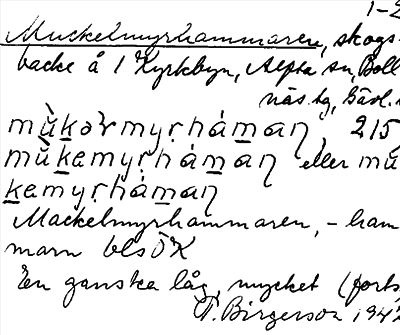 1-2
Muckelmyrhammaren, skogs-
backe å 1 Kyrkbyn, Alfta sn, Boll
näs tg, Gävl.
mùkərmyṛháman, 215
mùkemyṛháman eller mu
kemyṛháman
Mackelmyrhammaren, - ham
marn bls ÖK
En ganska låg, mycket (forts
T. Birgerson 194